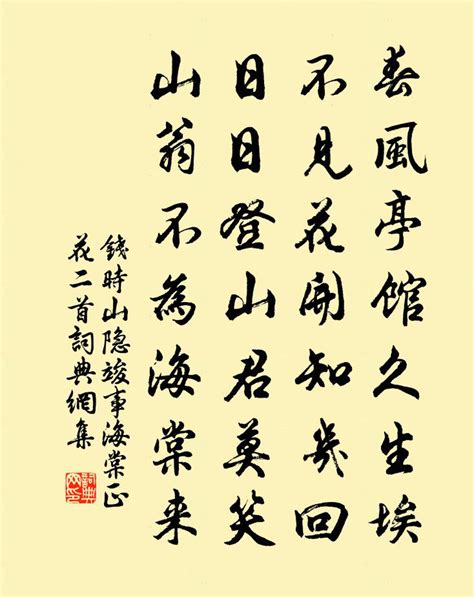 春風亭館久生埃
不見花開知幾回
日日登山君莫笑
山翁不為海棠来
錢時山隐竣事海棠正
花二首詞典網集
詞典网句